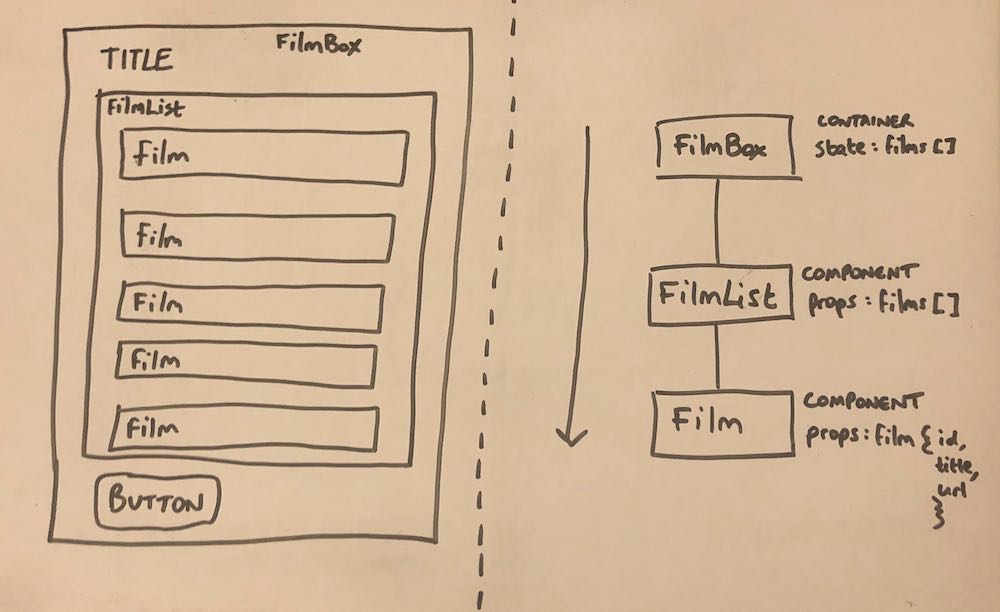 FilmBox
TITLE
FilmList
Film
Film
Film
Film
Film
BUTTON
FilmBox
CONTAINER
state: films []
FilmList
COMPONENT
props: films []
Film
COMPONENT
props: film { id,
title,
url
}